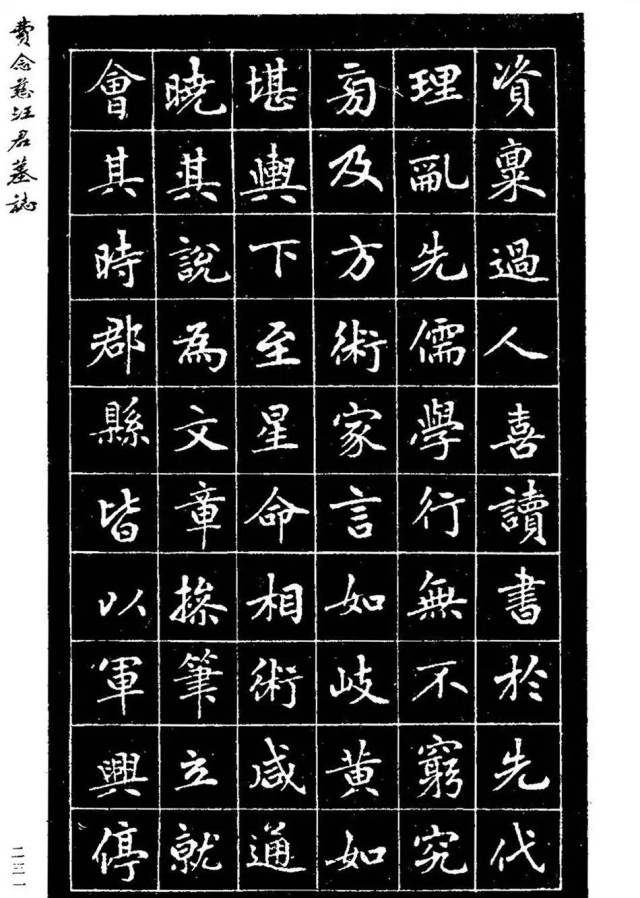 資稟過人喜讀書於先代
理亂先儒學行無不窮究
旁及方術家言如岐黃如
堪輿下至星命相術咸通
曉其說為文章操筆立就
會其時郡縣皆以軍興停
費念慈汪君墓誌
二三一